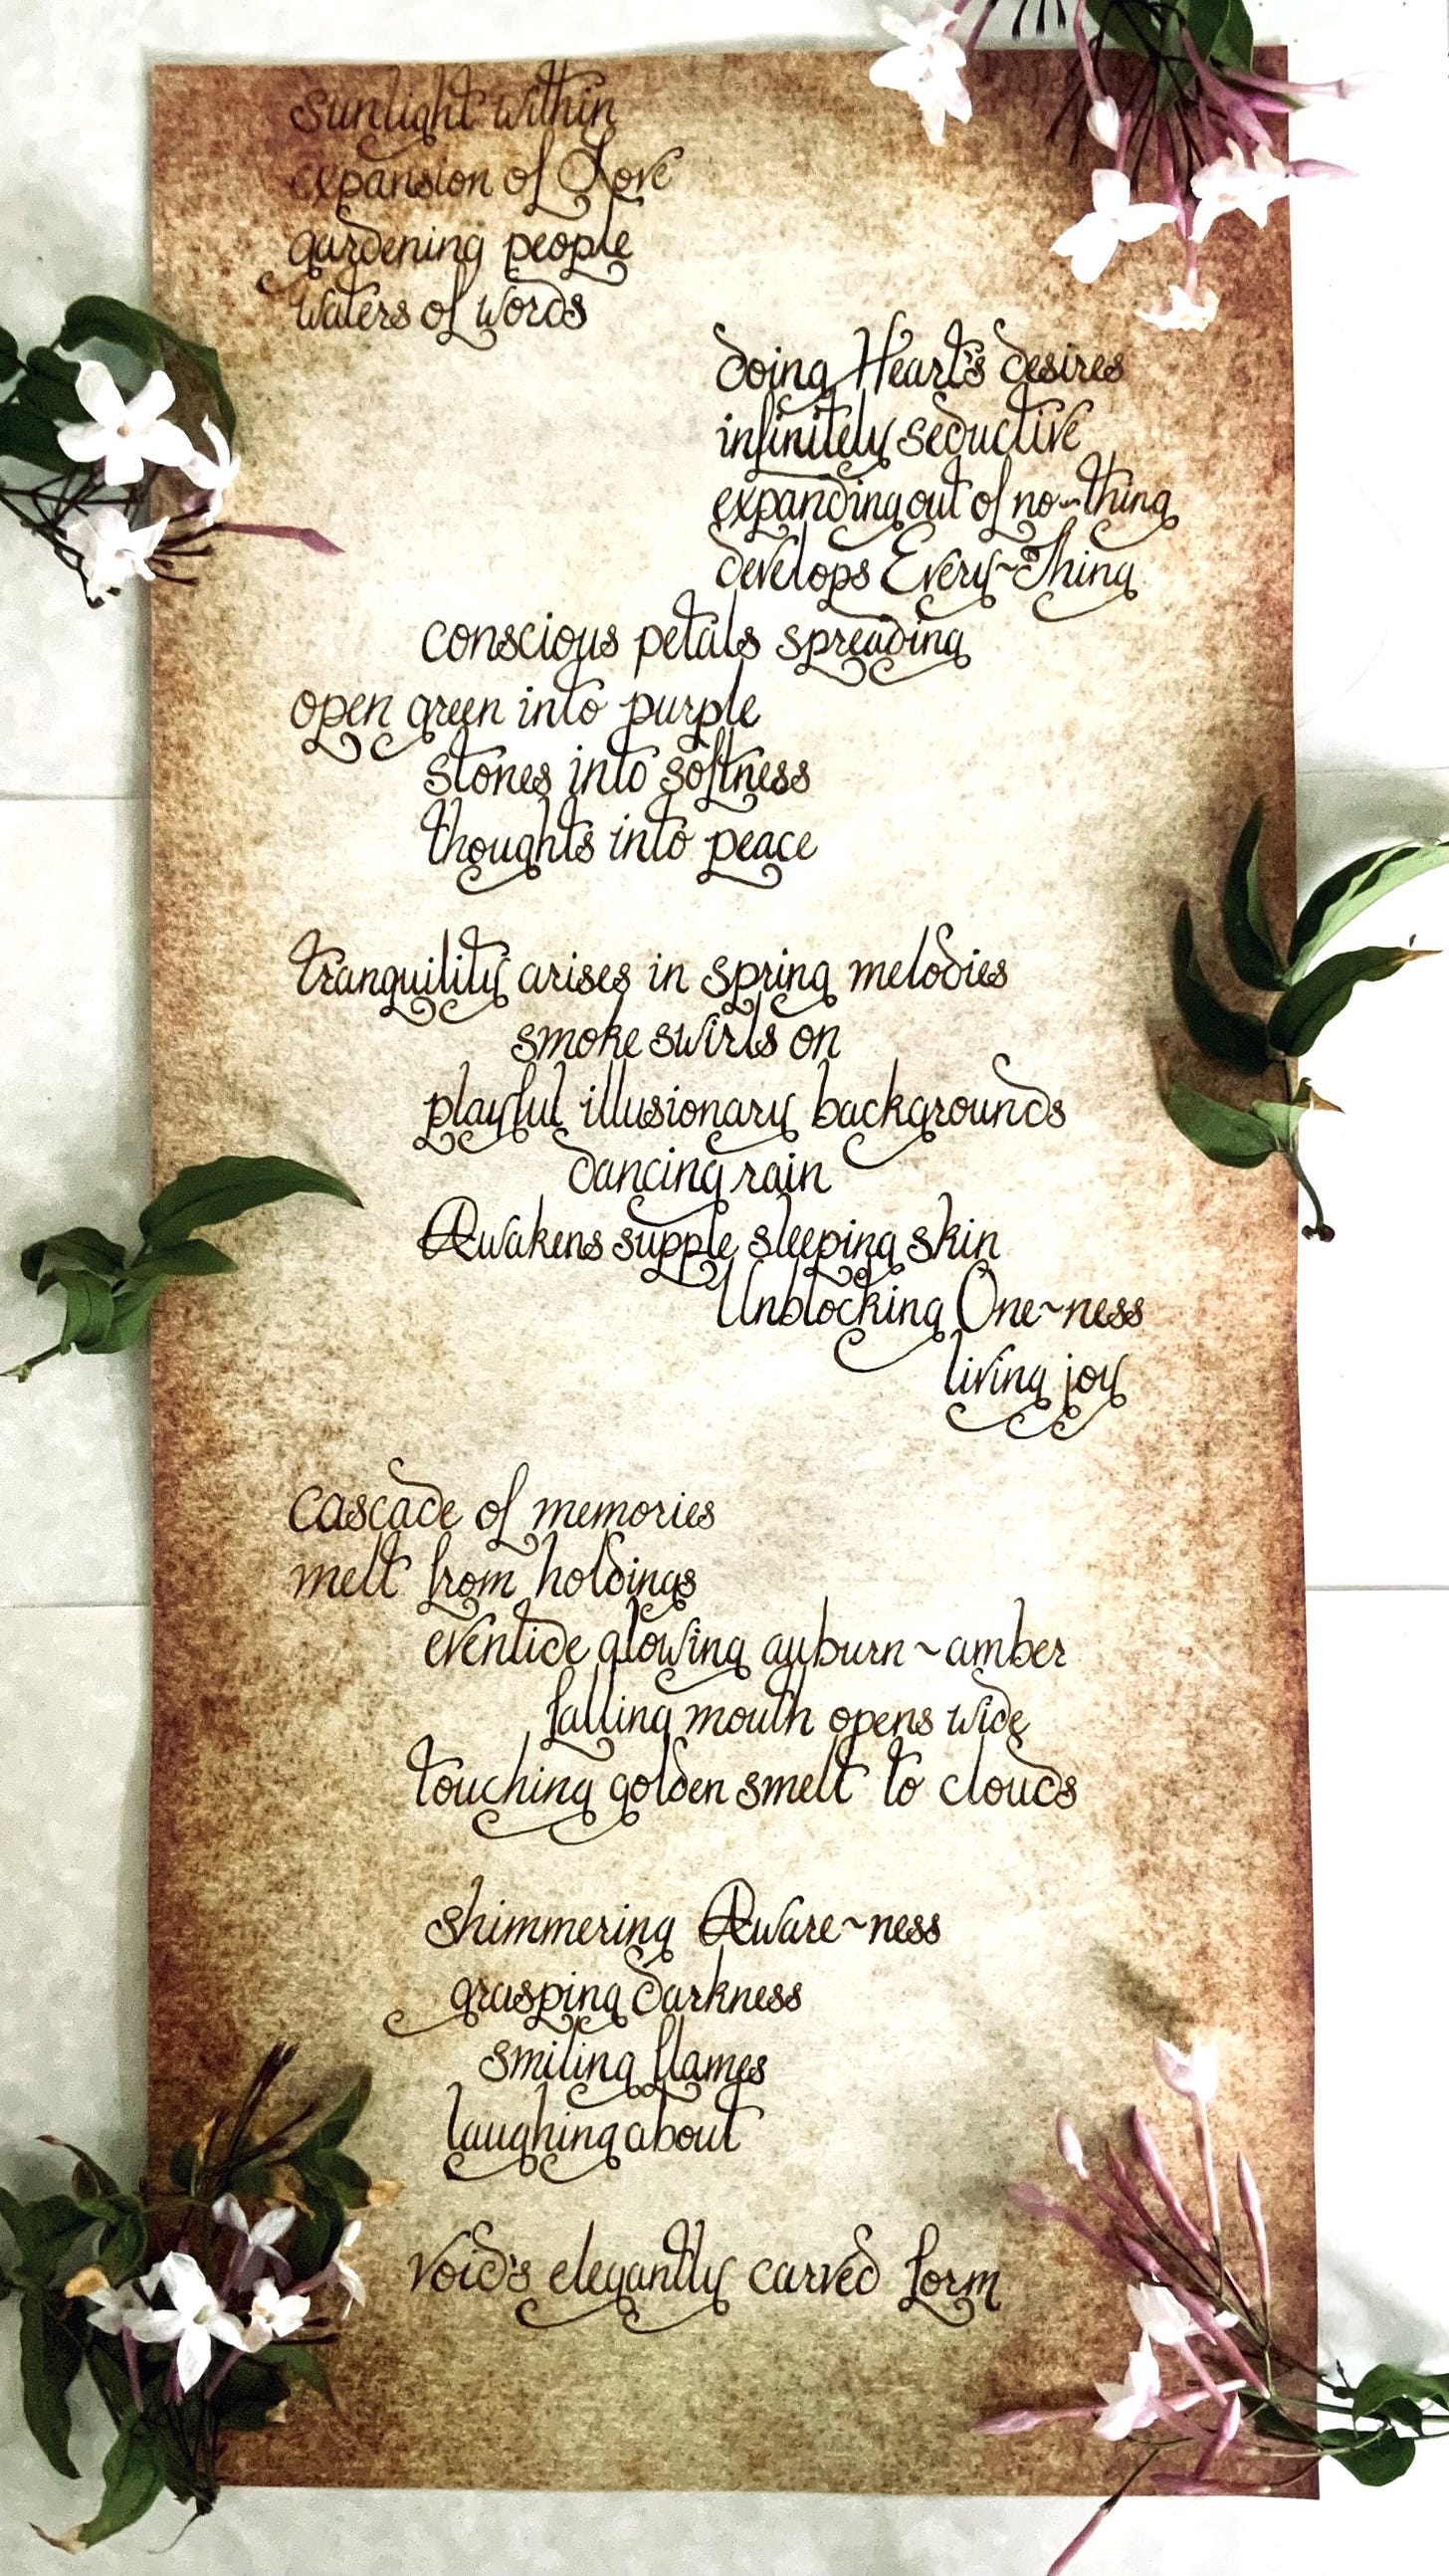 sunlight within
expansion of Love
gardening people
waters of words
doing Heart's desires
infinitely seductive
expanding out of no~thing
develops Every~Thing
conscious petals spreading
open green into purple
stones into softness
thoughts into peace
tranquility arises in spring melodies
smoke swirls on
playful illusionary backgrounds
dancing rain
Awakens supple sleeping skin
Unblocking One~ness
living joy
cascade of memories
melt from holdings
eventide glowing auburn~amber
falling mouth opens wide
touching golden smelt to clouds
shimmering Aware~ness
grasping darkness
smiling flames
laughing about
void's elegantly carved form